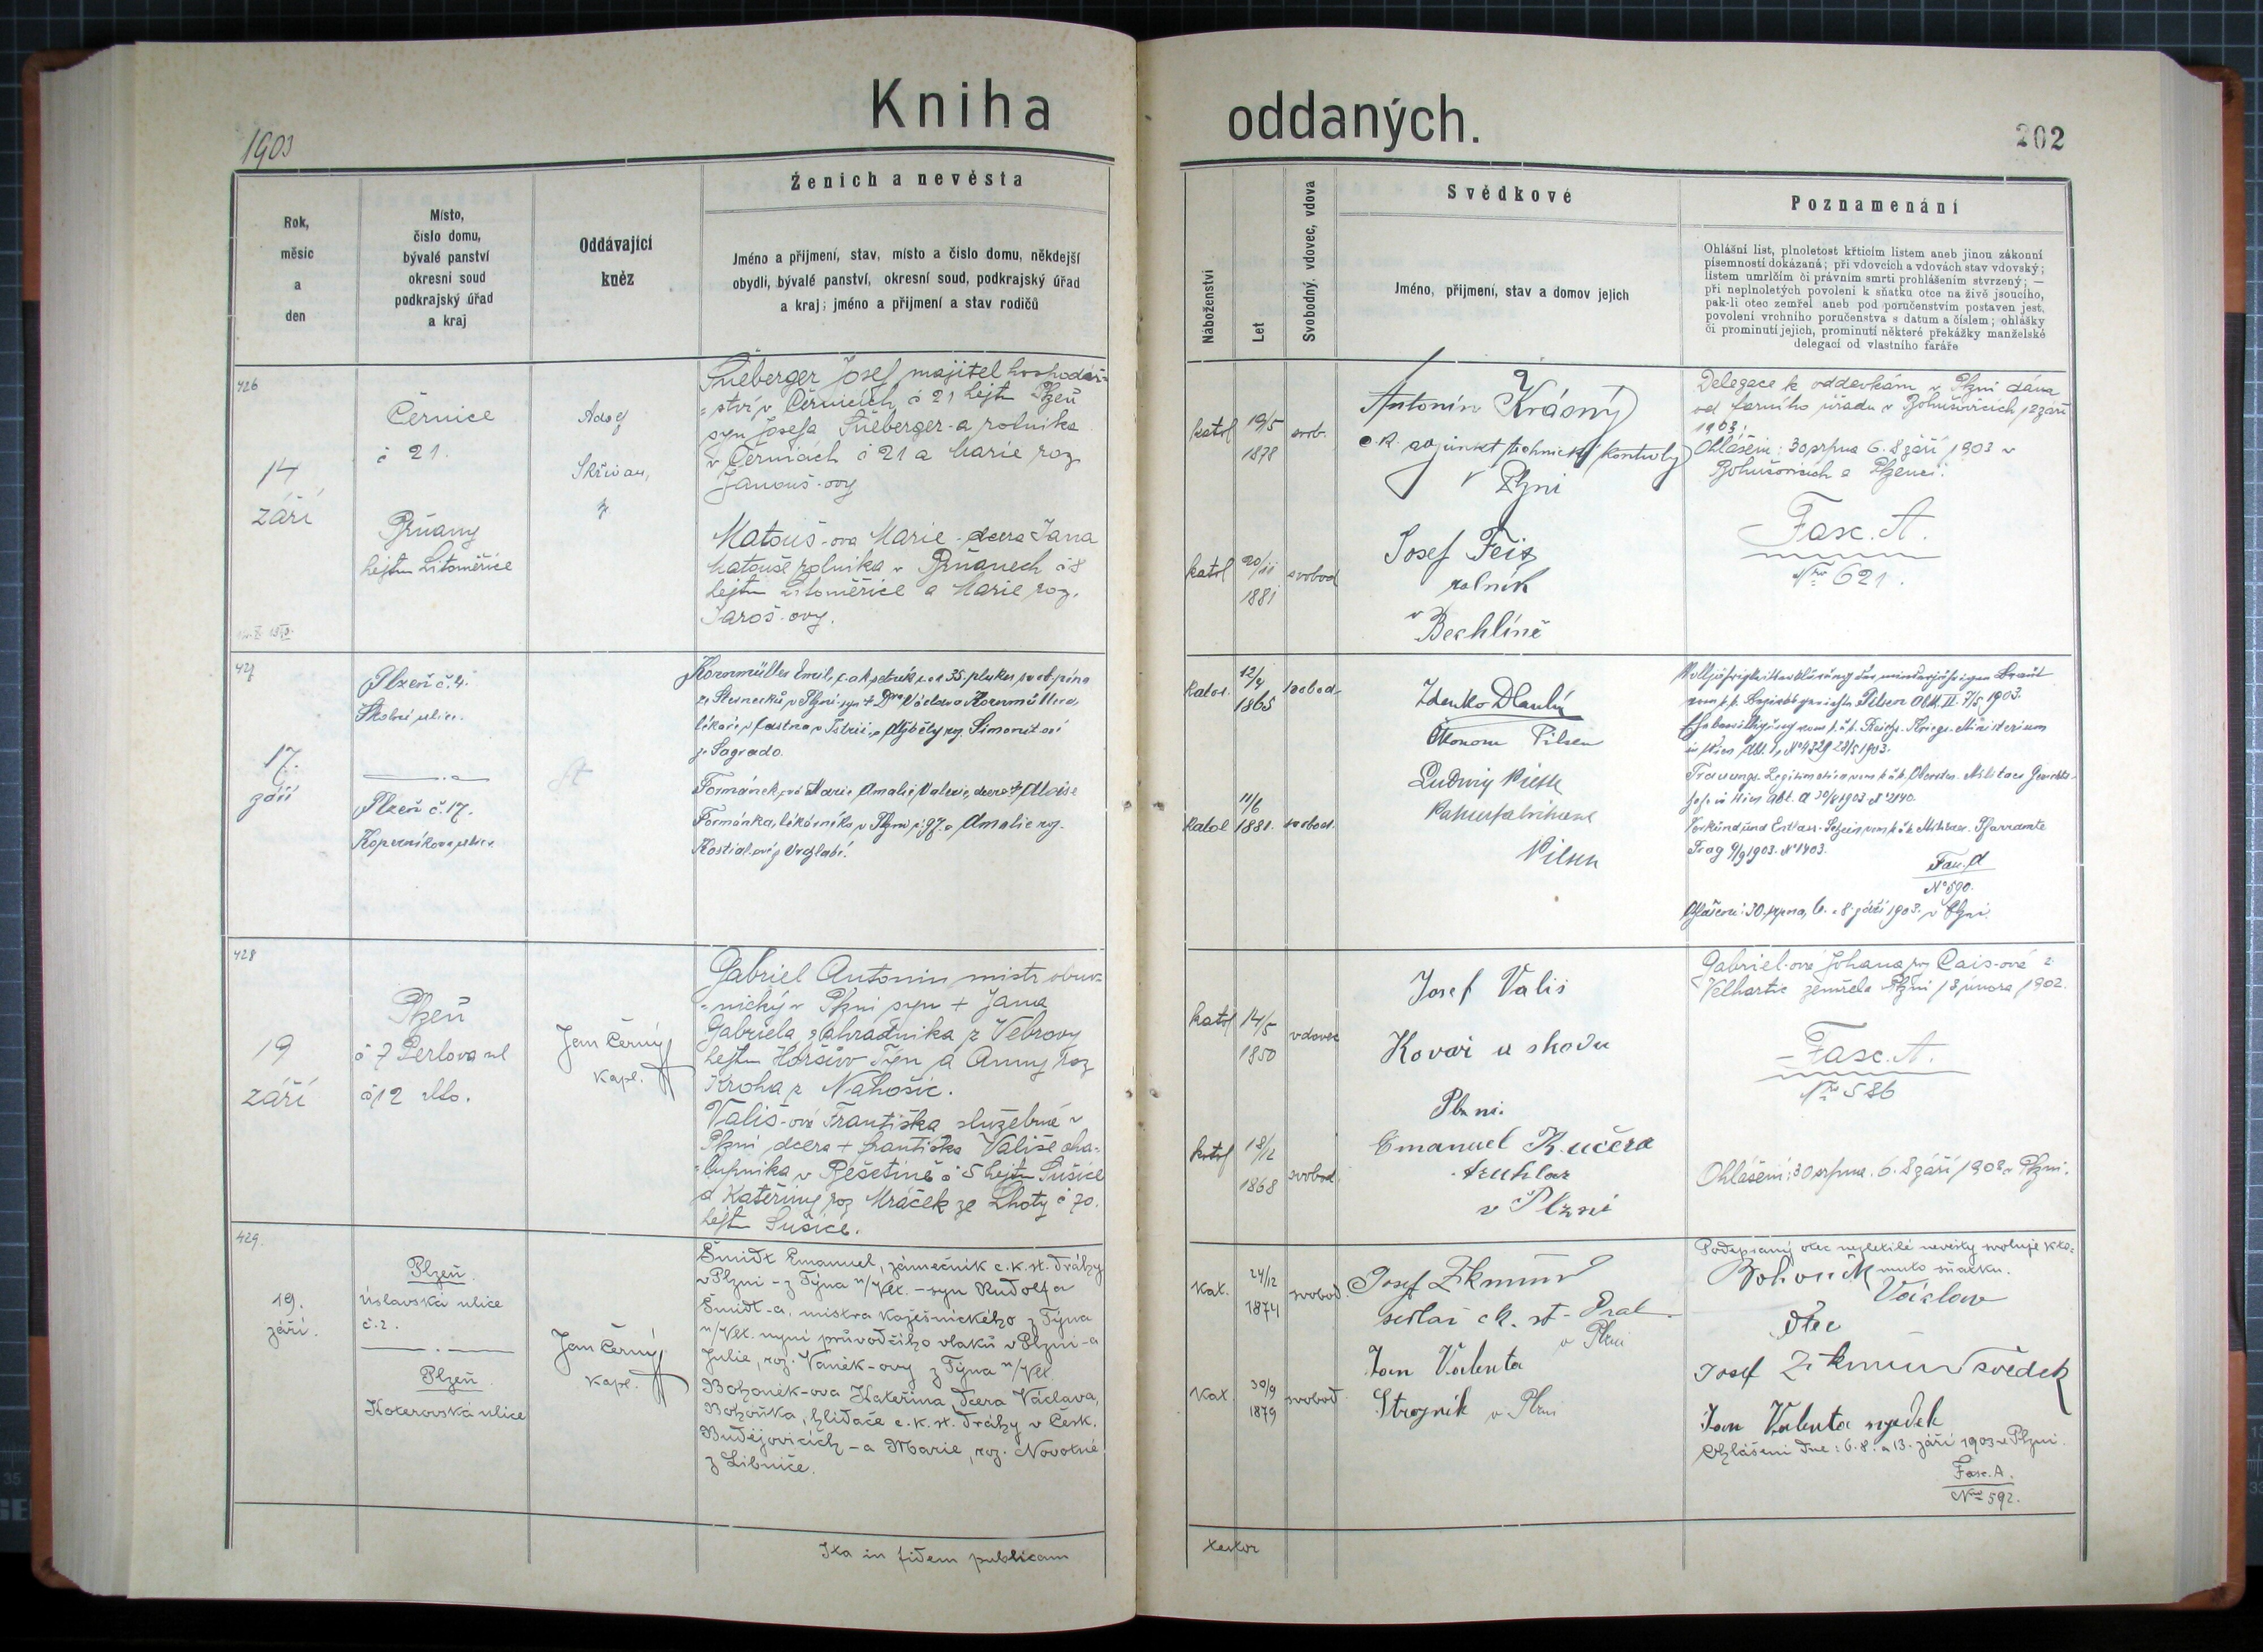 Kniha oddaných.
1903
202
Rok,
měsíc
a
den
Místo,
číslo domu,
bývalé panství
okresní soud
podkrajský úřad
a kraj
Oddávající
kněz
Ženich a nevěsta
Jméno a příjmení, stav, místo a číslo domu, někdejší
obydlí, bývalé panství, okresní soud, podkrajský úřad
a kraj; jméno a příjmení a stav rodičů
Náboženství
Let
Svobodný, vdovec, vdova
Svědkové
Jméno, příjmení, stav a domov jejich
Poznamenání
Ohlášní list, plnoletost křticím listem aneb jinou zákonní
písemností dokázaná; při vdovcích a vdovách stav vdovský;
listem umrlčím či právním smrti prohlášením stvrzený; —
při neplnoletých povolení k sňatku otce na živě jsoucího,
pak-li otec zemřel aneb pod poručenstvím postaven jest,
povolení vrchního poručenstva s datum a číslem; ohlášky
či prominutí jejich, prominutí některé překážky manželské
delegací od vlastního faráře
426
14
září
Černice
č 21.
Přňany
hejtm Litoměřice
Adolf
Skřivan,
Šneberger Josef, majitel hospodář=
=ství v Černicích č 21 hejtm Plzeň
syn Josefa Šneberger-a rolníka
v Černicích č 21 a Marie roz.
Janouš-ovy
Matouš-ova Marie dcera Jana
Matouše rolníka v Přňanech č 8
hejtm Litoměřice a Marie roz.
Jaroš-ovy.
katol
19/5
1878
svob.
katol
20/11
1881
svobod
Antonín Krásný
c.k. adjunkt technické kontroly
v Plzni
Josef Feis
rolník
v
Bechlíně
Delegace k oddavkám v Plzni dána
od farního úřadu v Bohušovicích 12 září
1903.
Ohlášení: 30 srpna 6. 8 září 1903 v
Bohušovicích a Plzenci.
Fasc. A.
Nro 621.
427
17.
září
Plzeň č. 4.
Školní ulice.
Plzeň č. 17.
Koperníkova ulice.
Kornmüller Emil, c. a k. setník c. a k. 35. pluku
v Plzni, syn † Dra Václava Kornmüllera,
lékaře v Istrii, a Alžběty roz. Simonit-ové
z Sagrado.
Formánek-ová Marie Amalie Valerie, dcera † Aloise
Formánka, lékárníka v Plzni č. 97. a Amalie roz.
Kostial-ové z Vrchlabí.
katol.
12/4
1865
svobod.
katol
11/6
1881.
svobod.
Zdenko Dlauhý
Ökonom Pilsen
Ludwig Piette
Papierfabrikant
Pilsen
vom k.k. Bezirksgerichte Pilsen Abt. II. 7/5 1903.
in Wien Abt. 1, No 4329 28/5 1903.
Trauungs-Legitimation vom k. u. k. Obersten Militaer Gerichts-
hofe in Wien Abt. A 30/6 1903 No 2140.
Verkünd und Entlass-Schein vom k. u. k. Militaer-Pfarramte
Prag 9/9 1903. No 1403.
Fasc. A
No 590.
Ohlášení: 30. srpna, 6. a 8. září 1903. v Plzni.
428
19
září
Plzeň
č 7 Perlova ul
č 12 dto.
Jan Černý
kapl.
Gabriel Antonín mistr obuv=
=nický v Plzni syn + Jana
Gabriela zahradníka z Vebrovy
hejtm Horšův Týn a Anny roz
Kroha z Nahošic.
Vališ-ová Františka služebná v
Plzni dcera + Františka Vališe cha=
=lupníka v Rešetině č 5 hejtm Sušice
a Kateřiny roz Mráček ze Lhoty č 70.
hejtm Sušice.
katol
14/5
1850
vdovec
katol
18/12
1868
svobod.
Josef Vališ
Kovář u Škodu
Plzni.
Emanuel Kučera
truhlar
v Plzni
Gabriel-ová Johana roz Cais-ová z
Velhartic zemřela Plzni 13 února 1902.
Fasc. A.
Nro 586
Ohlášení: 30 srpna. 6. 8 září 1903 v Plzni.
429.
19.
září.
Plzeň.
Úslavská ulice
č. 2.
Plzeň.
Koterovská ulice
Jan Černý
kapl.
Šmidt Emanuel, zámečník c. k. st. dráhy
v Plzni - z Týna n/Vlt. - syn Rudolfa
Šmidt-a, mistra kožešnického z Týna
n/Vlt. nyní průvodčího vlaků v Plzni - a
Julie, roz. Vaněk-ovy z Týna n/Vlt.
Bohoněk-ova Kateřina, dcera Václava,
Bohoňka, hlídače c. k. st. dráhy v Česk.
Budějovicích - a Marie, roz. Novotné
z Libníče.
Kat.
24/12
1874
svobod.
Kat.
30/9
1879
svobod.
Josef Zikmund
sedlař c k. st. Drah
v Plzni
Jan Valenta
Strojník v Plzni
Podepsaný otec nezletilé nevěsty svoluje k to-
muto sňatku.
Bohoněk
Václav
otec
Josef Zikmund svědek
Jan Valenta svědek
Ohlášeni dne: 6. 8. a 13. září 1903 v Plzni.
Fasc. A.
Nro 592.
Ita in fidem publicam
testor